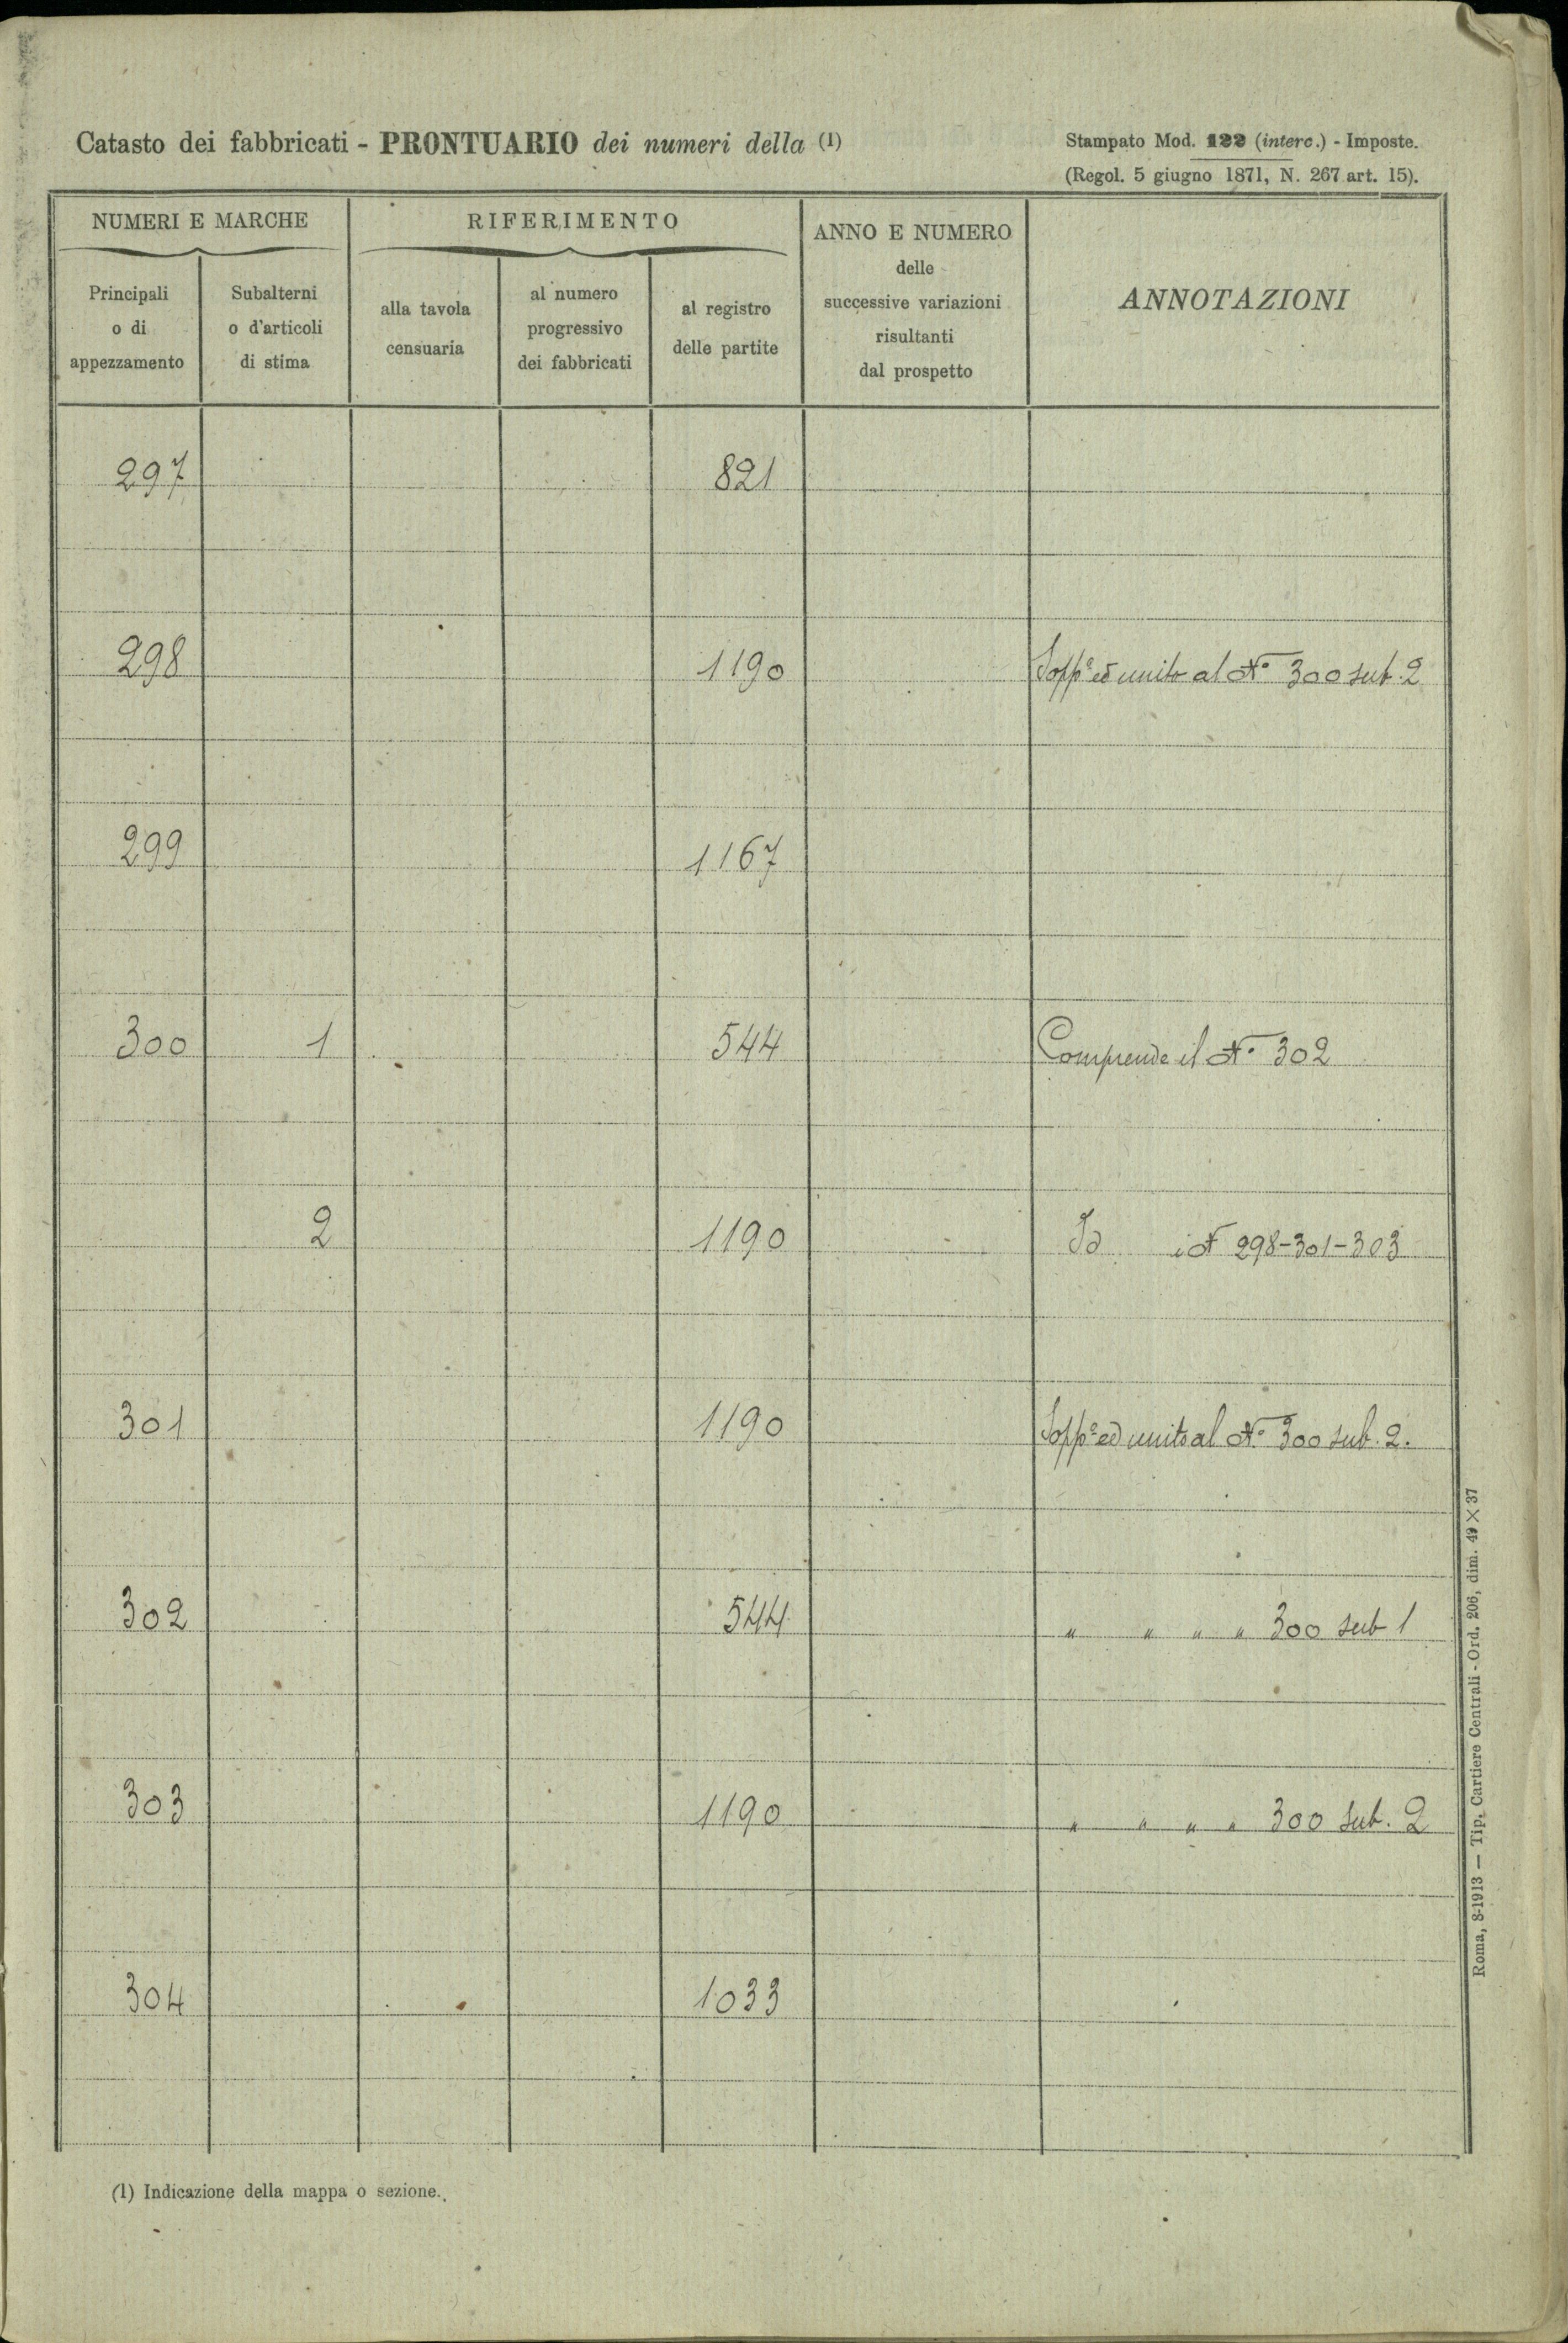 Catasto dei fabbricati - PRONTUARIO dei numeri della (1)
Stampato Mod. 122 (interc.) - Imposte.
(Regol. 5 giugno 1871, N. 267 art. 15).
NUMERI E MARCHE
RIFERIMENTO
ANNO E NUMERO
delle
successive variazioni
risultanti
dal prospetto
ANNOTAZIONI
Principali
o di
appezzamento
Subalterni
o d'articoli
di stima
alla tavola
censuaria
al numero
progressivo
dei fabbricati
al registro
delle partite
297 821
298 1190 Sopp.º ed unito al Nº 300 sub. 2
299 1167
300 1 544 Comprende il Nº 302
2 1190 Id i N 298-301-303
301 1190 Sopp.º ed unito al Nº 300 sub. 2.
302 544 " " " " 300 sub 1
303 1190 " " " " 300 sub. 2
304 1033
(1) Indicazione della mappa o sezione.
Roma, 8-1913 — Tip. Cartiere Centrali - Ord. 206, dim. 49 × 37